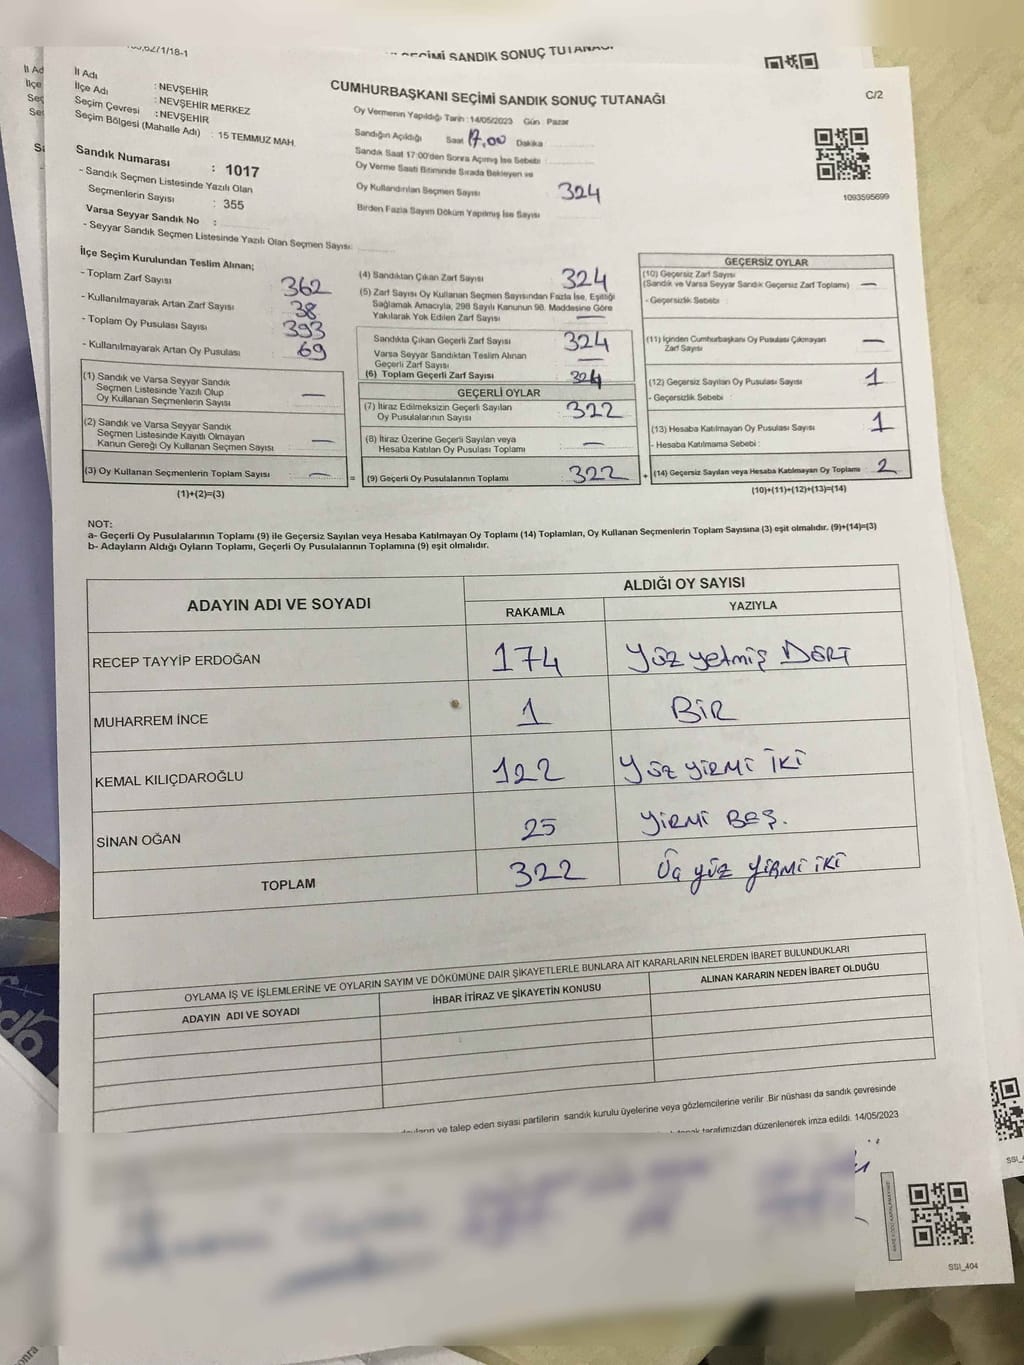 SEÇİMİ SANDIK SONUÇ
İl Adı : NEVŞEHİR
İlçe Adı : NEVŞEHİR MERKEZ
Seçim Çevresi : NEVŞEHİR
Seçim Bölgesi (Mahalle Adı) : 15 TEMMUZ MAH.
Sandık Numarası : 1017
- Sandık Seçmen Listesinde Yazılı Olan
Seçmenlerin Sayısı : 355
Varsa Seyyar Sandık No :
- Seyyar Sandık Seçmen Listesinde Yazılı Olan Seçmen Sayısı:
CUMHURBAŞKANI SEÇİMİ SANDIK SONUÇ TUTANAĞI
C/2
Oy Vermenin Yapıldığı Tarih : 14/05/2023 Gün : Pazar
Sandığın Açıldığı Saat 17,00 Dakika
Sandık Saat 17:00'den Sonra Açımış İse Sebebi
Oy Verme Saati Bitiminde Sırada Bekleyen ve
Oy Kullandırılan Seçmen Sayısı 324
Birden Fazla Sayım Döküm Yapılmış İse Sayısı
1093595699
İlçe Seçim Kurulundan Teslim Alınan;
- Toplam Zarf Sayısı 362
- Kullanılmayarak Artan Zarf Sayısı 38
- Toplam Oy Pusulası Sayısı 393
- Kullanılmayarak Artan Oy Pusulası 69
(1) Sandık ve Varsa Seyyar Sandık
Seçmen Listesinde Yazılı Olup
Oy Kullanan Seçmenlerin Sayısı —
(2) Sandık ve Varsa Seyyar Sandık
Seçmen Listesinde Kayıtlı Olmayan
Kanun Gereği Oy Kullanan Seçmen Sayısı —
(3) Oy Kullanan Seçmenlerin Toplam Sayısı — =
(1)+(2)=(3)
(4) Sandıktan Çıkan Zarf Sayısı 324
(5) Zarf Sayısı Oy Kullanan Seçmen Sayısından Fazla İse, Eşitliği
Sağlamak Amacıyla, 298 Sayılı Kanunun 98. Maddesine Göre
Yakılarak Yok Edilen Zarf Sayısı —
Sandıkta Çıkan Geçerli Zarf Sayısı 324
Varsa Seyyar Sandıktan Teslim Alınan
Geçerli Zarf Sayısı —
(6) Toplam Geçerli Zarf Sayısı 324
GEÇERLİ OYLAR
(7) İtiraz Edilmeksizin Geçerli Sayılan
Oy Pusulalarının Sayısı 322
(8) İtiraz Üzerine Geçerli Sayılan veya
Hesaba Katılan Oy Pusulaları Toplamı —
(9) Geçerli Oy Pusulalarının Toplamı 322 +
GEÇERSİZ OYLAR
(10) Geçersiz Zarf Sayısı
(Sandık ve Varsa Seyyar Sandık Geçersiz Zarf Toplamı) —
- Geçersizlik Sebebi :
(11) İçinden Cumhurbaşkanı Oy Pusulası Çıkmayan
Zarf Sayısı —
(12) Geçersiz Sayılan Oy Pusulası Sayısı 1
- Geçersizlik Sebebi :
(13) Hesaba Katılmayan Oy Pusulası Sayısı 1
- Hesaba Katılmama Sebebi :
(14) Geçersiz Sayılan veya Hesaba Katılmayan Oy Toplamı 2
(10)+(11)+(12)+(13)=(14)
NOT:
a- Geçerli Oy Pusulalarının Toplamı (9) ile Geçersiz Sayılan veya Hesaba Katılmayan Oy Toplamı (14) Toplamları, Oy Kullanan Seçmenlerin Toplam Sayısına (3) eşit olmalıdır. (9)+(14)=(3)
b- Adayların Aldığı Oyların Toplamı, Geçerli Oy Pusulalarının Toplamına (9) eşit olmalıdır.
ADAYIN ADI VE SOYADI ALDIĞI OY SAYISI
RAKAMLA YAZIYLA
RECEP TAYYİP ERDOĞAN 174 Yüz yetmiş DÖRT
MUHARREM İNCE 1 BİR
KEMAL KILIÇDAROĞLU 122 Yüz YİRMİ İKİ
SİNAN OĞAN 25 YİRMİ BEŞ.
TOPLAM 322 Üç yüz YİRMİ İKİ
OYLAMA İŞ VE İŞLEMLERİNE VE OYLARIN SAYIM VE DÖKÜMÜNE DAİR ŞİKAYETLERLE BUNLARA AİT KARARLARIN NELERDEN İBARET BULUNDUKLARI
ADAYIN ADI VE SOYADI İHBAR İTİRAZ VE ŞİKAYETİN KONUSU ALINAN KARARIN NEDEN İBARET OLDUĞU
ve talep eden siyasi partilerin sandık kurulu üyelerine veya gözlemcilerine verilir .Bir nüshası da sandık çevresinde
tarafımızdan düzenlenerek imza edildi. 14/05/2023
SSI_404